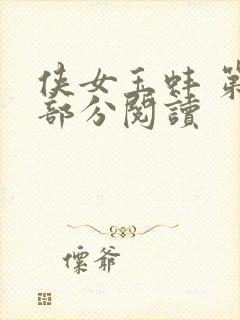 侠女玉蚌 第
部分閱讀
爺